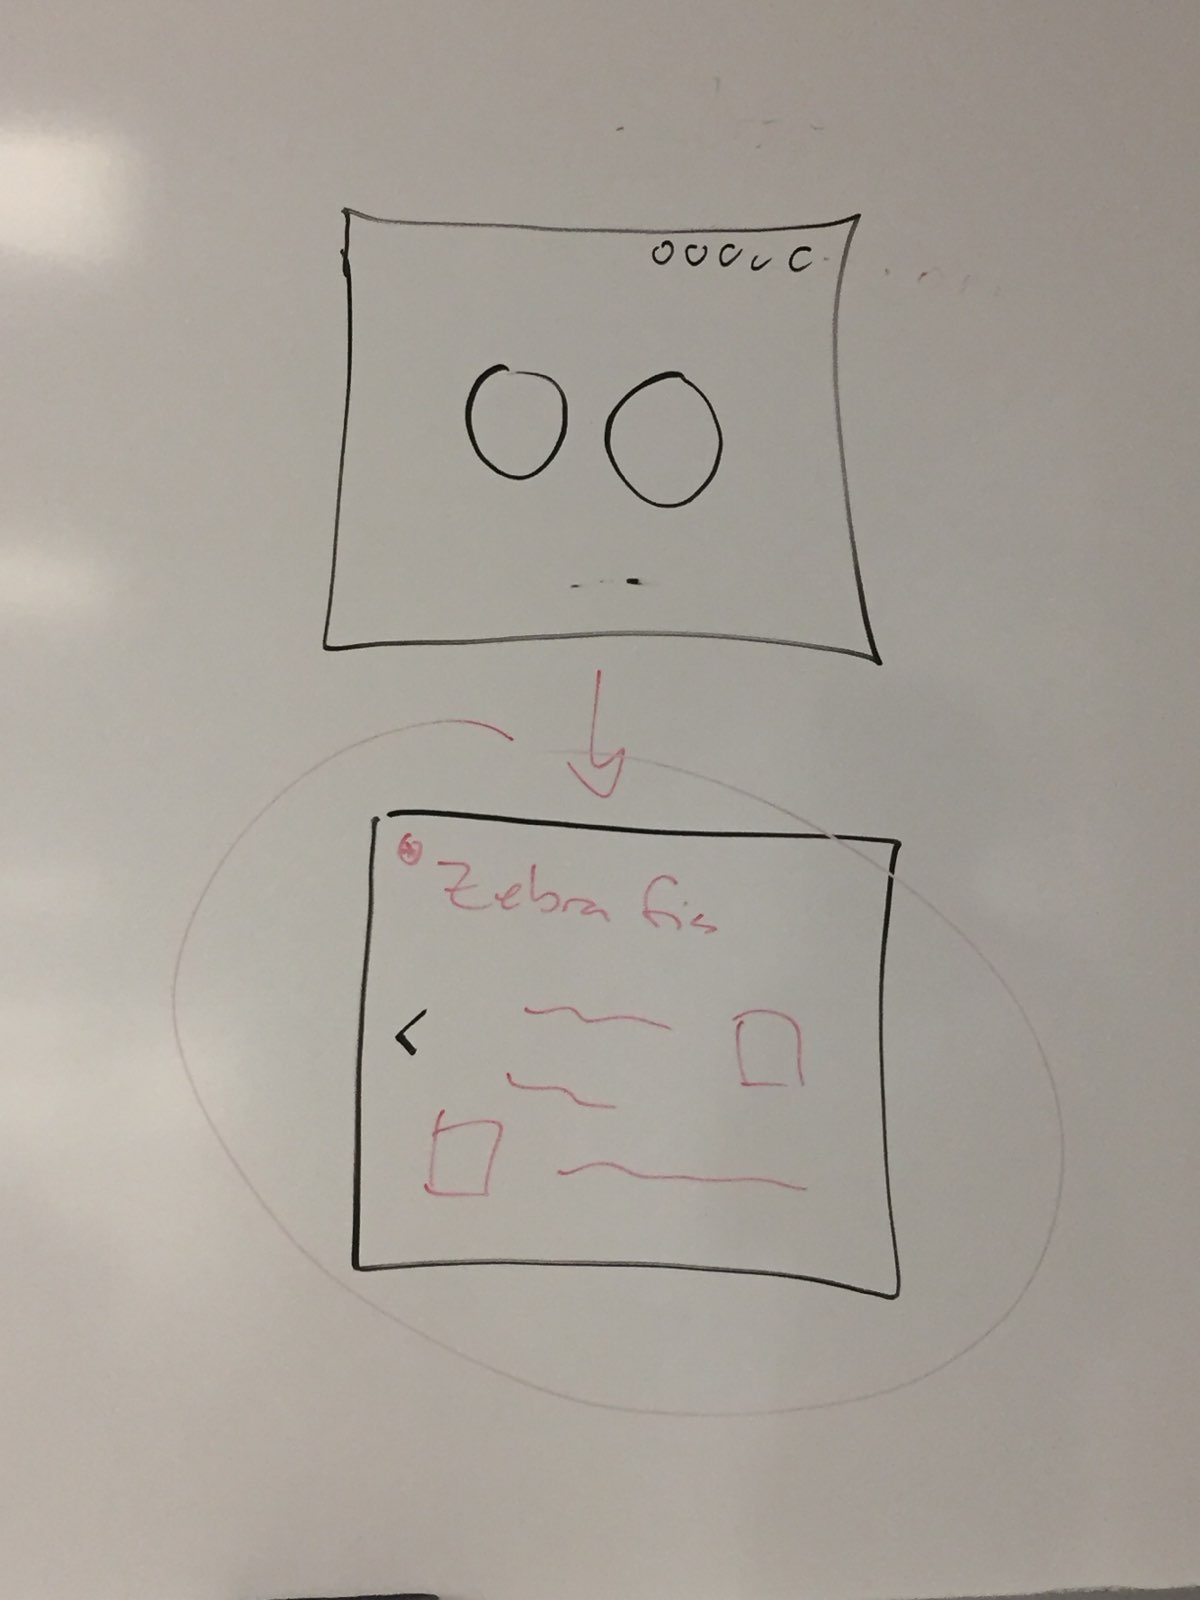 Zebra fis